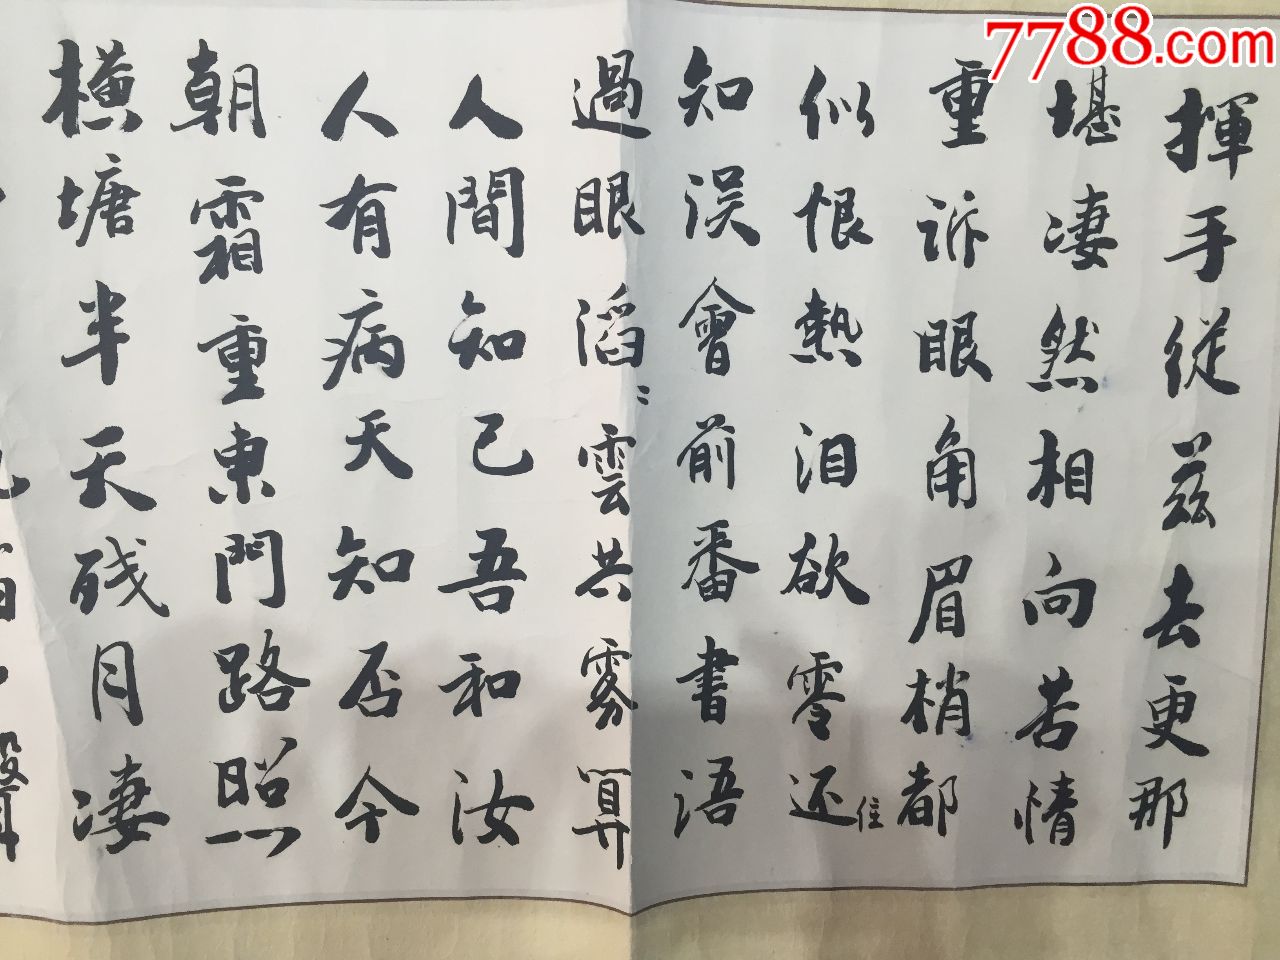 7788.com
揮手從茲去更那
堪淒然相向苦情
重訴眼角眉梢都
似恨熱泪欲零还住
知误會前番書语
過眼滔〻雲共雾算
人間知己吾和汝
人有病天知否今
朝霜重東門路照
横塘半天残月凄